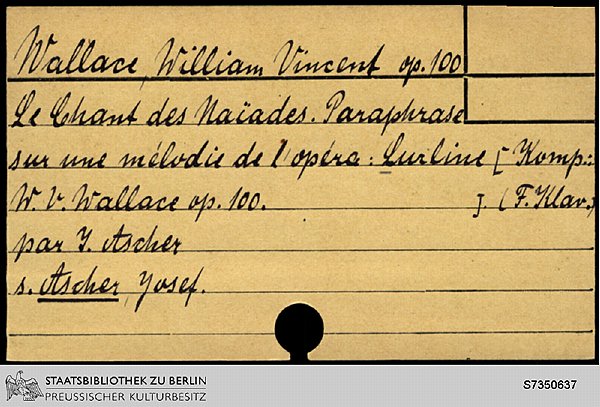 Wallace, William Vincent op. 100
Le Chant des Naïades. Paraphrase
sur une mélodie de l'opéra: Lurline [Komp.:
W. V. Wallace op. 100. ]. (F. Klav.)
par J. Ascher
s. Ascher, Josef.
STAATSBIBLIOTHEK ZU BERLIN
PREUSSISCHER KULTURBESITZ
S7350637